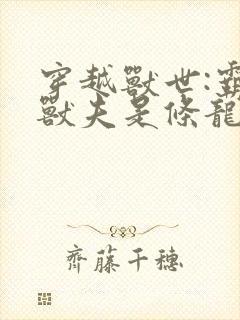 穿越獸世:霸
獸夫是條龍
齊藤千穗